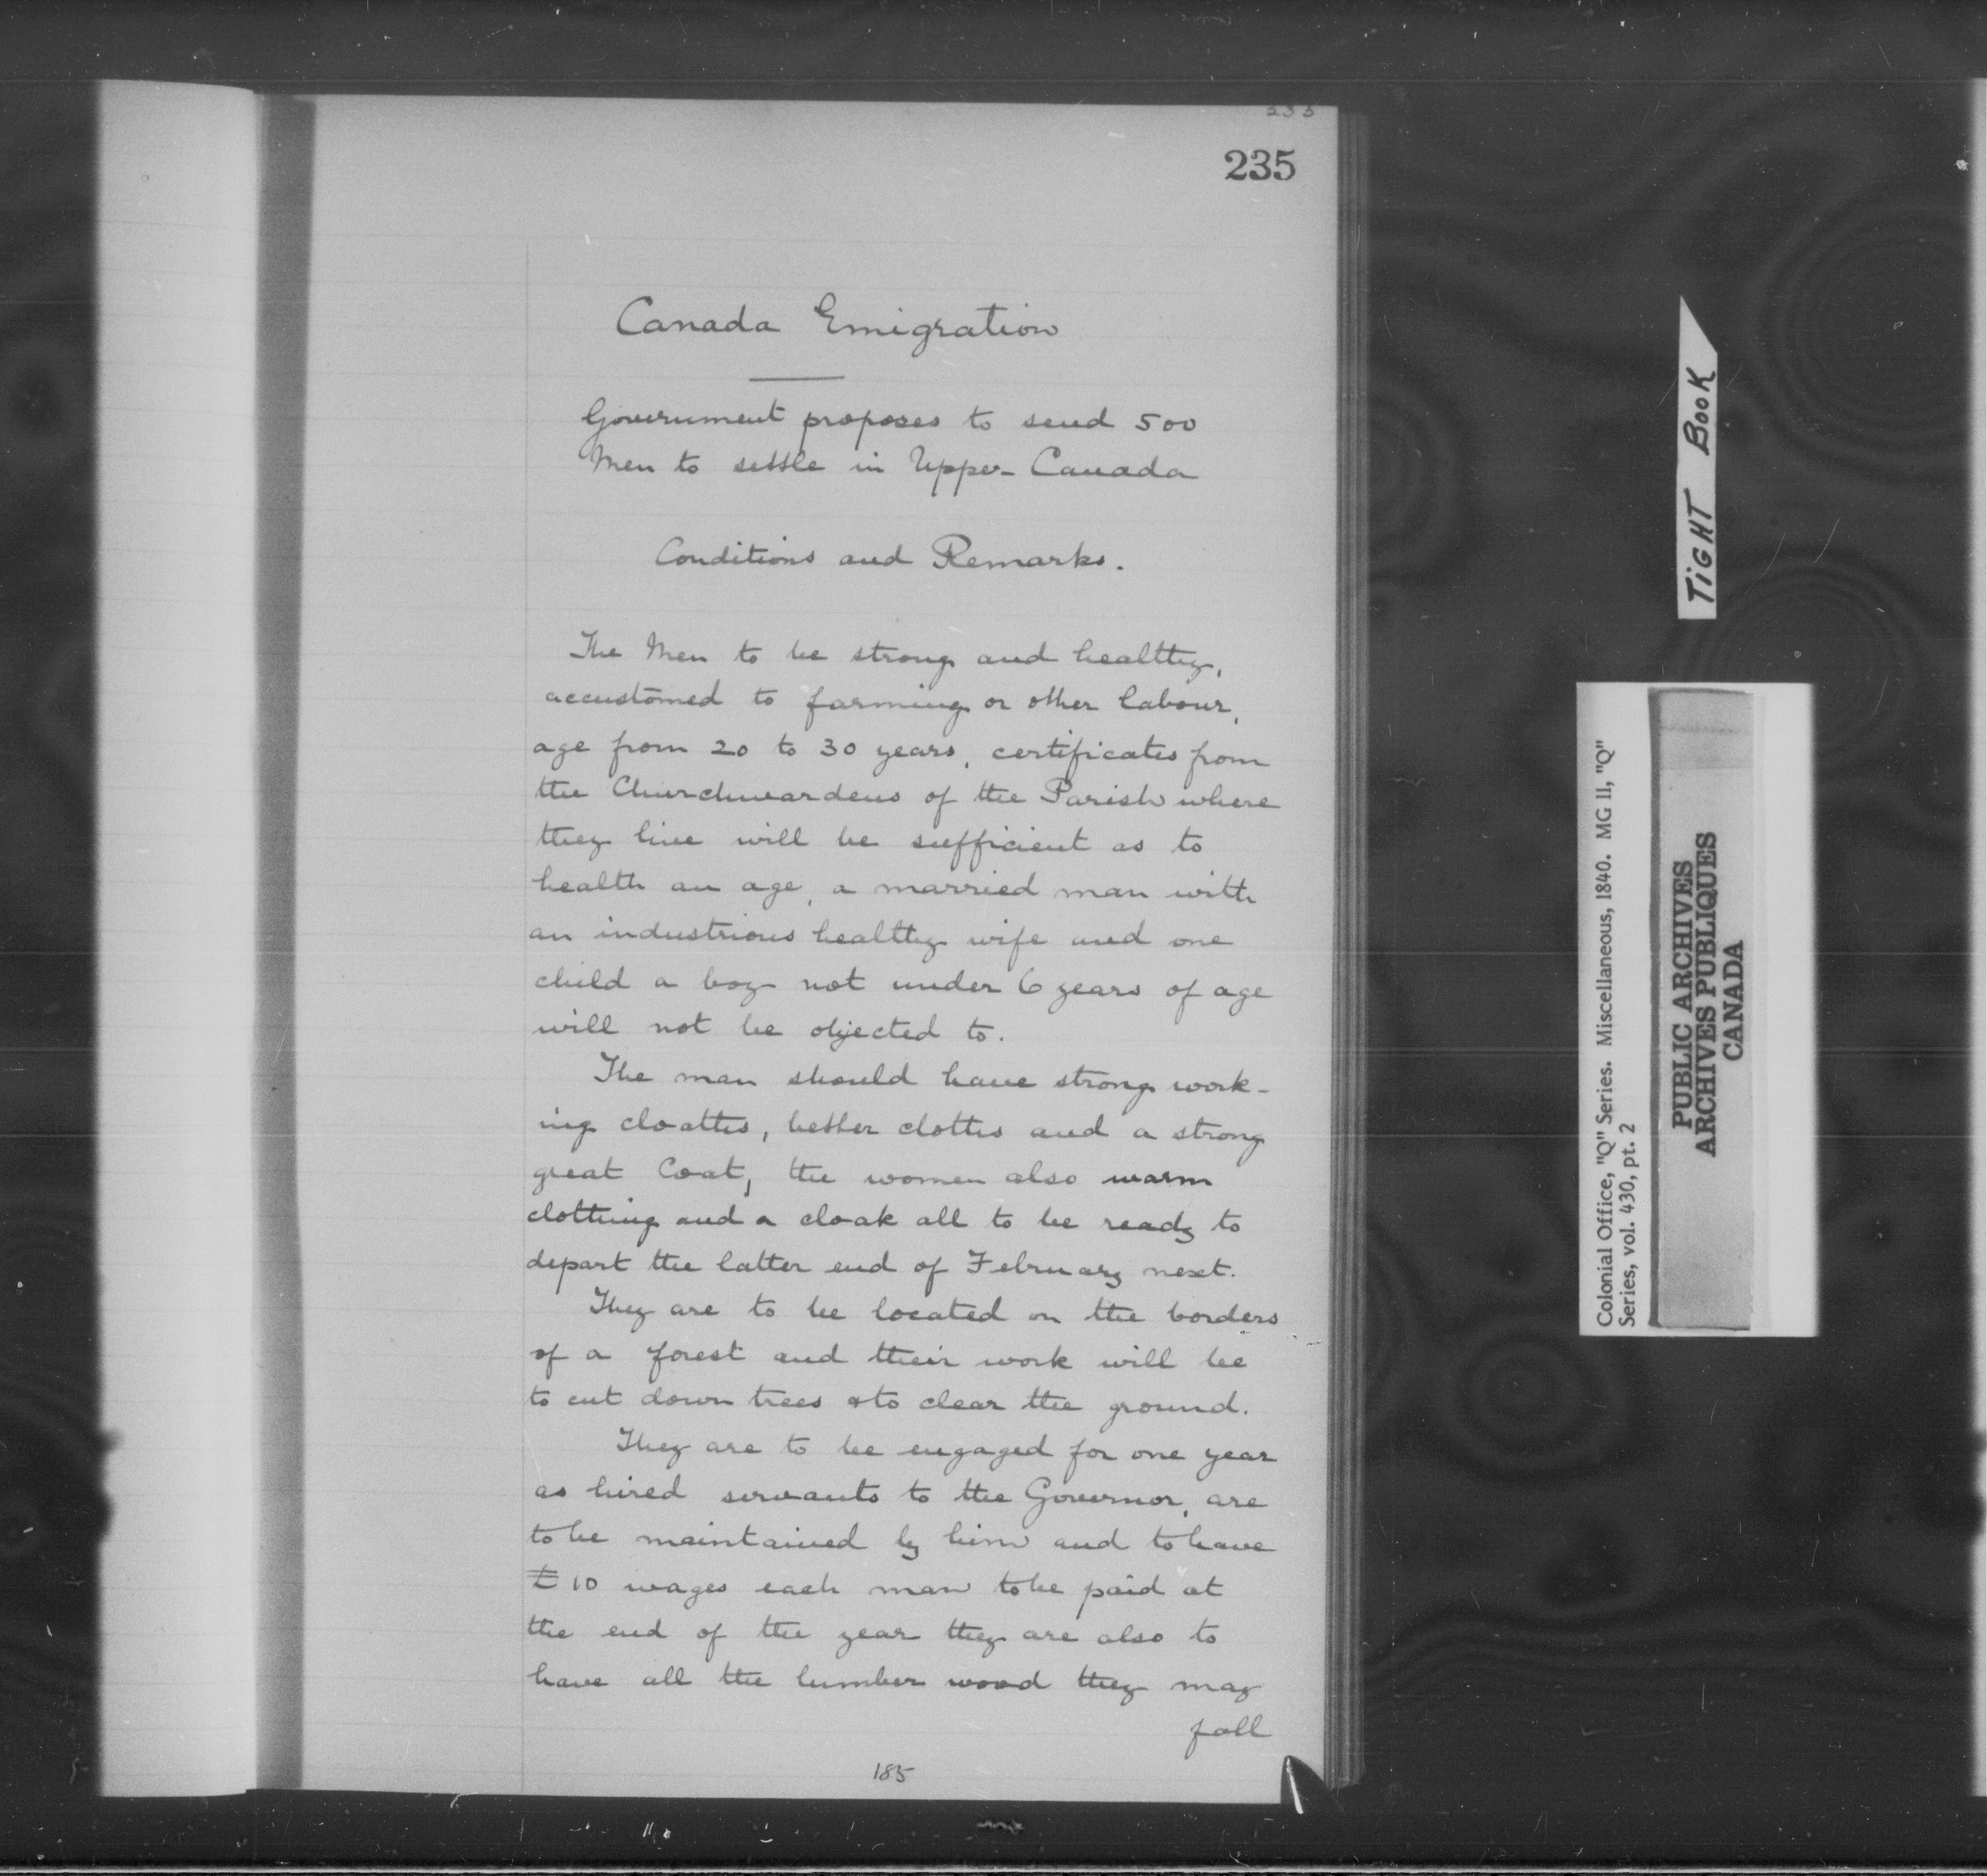 235
235
Canada Emigration
Government proposes to send 500
Men to settle in Upper Canada
Conditions and Remarks.
The Men to be strong and healthy,
accustomed to farming or other labour,
age from 20 to 30 years, certificates from
the Churchwardens of the Parish where
they live will be sufficient as to
health an age, a married man with
an industrious healthy wife and one
child a boy not under 6 years of age
will not be objected to.
The man should have strong work-
ing cloathes, better clothes and a strong
great Coat, the women also warm
clothing and a cloak all to be ready to
depart the latter end of February next.
They are to be located on the borders
of a forest and their work will be
to cut down trees & to clear the ground.
They are to be engaged for one year
as hired servants to the Governor, are
to be maintained by him and to have
£10 wages each man to be paid at
the end of the year they are also to
have all the lumber wood they may
fall
185
TIGHT BOOK
Colonial Office, "Q" Series. Miscellaneous, 1840. MG II, "Q"
Series, vol. 430, pt. 2
PUBLIC ARCHIVES
ARCHIVES PUBLIQUES
CANADA